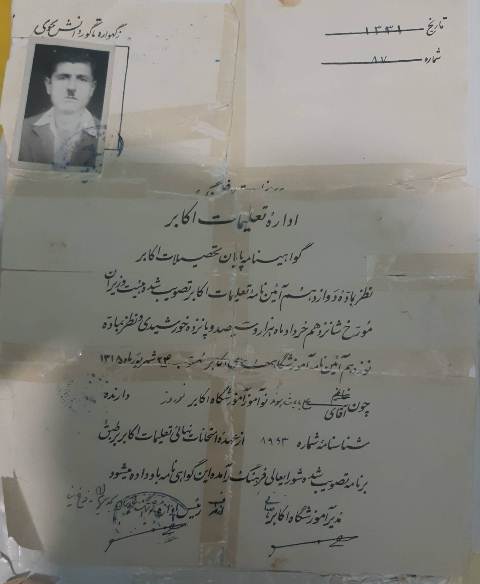 ز گهواره تا گور دانش بجوی
تاریخ ۱۳۳۱
شماره ۸۷
اداره تعلیمات اکابر
گواهینامه پایان تحصیلات اکابر
نظر بماده دوازدهم آئین نامه تعلیمات اکابر تصویب شده هیئت وزیران
مورخ شانزدهم خرداد ماه هزار و سیصد و پانزده خورشیدی و نظر بماده
نوزدهم آئین نامه آموزشگاه های اکابر ۲۴ شهریور ماه ۱۳۱۵
چون خانم آقای نوآموز آموزشگاه اکابر دارنده
شناسنامه شماره ۸۹۵۳ از عهده امتحانات نهائی تعلیمات اکابر بر طبق
برنامه تصویب شده شورایعالی فرهنگ برآمده این گواهی نامه باو داده میشود
مدیر آموزشگاه اکابر رئیس